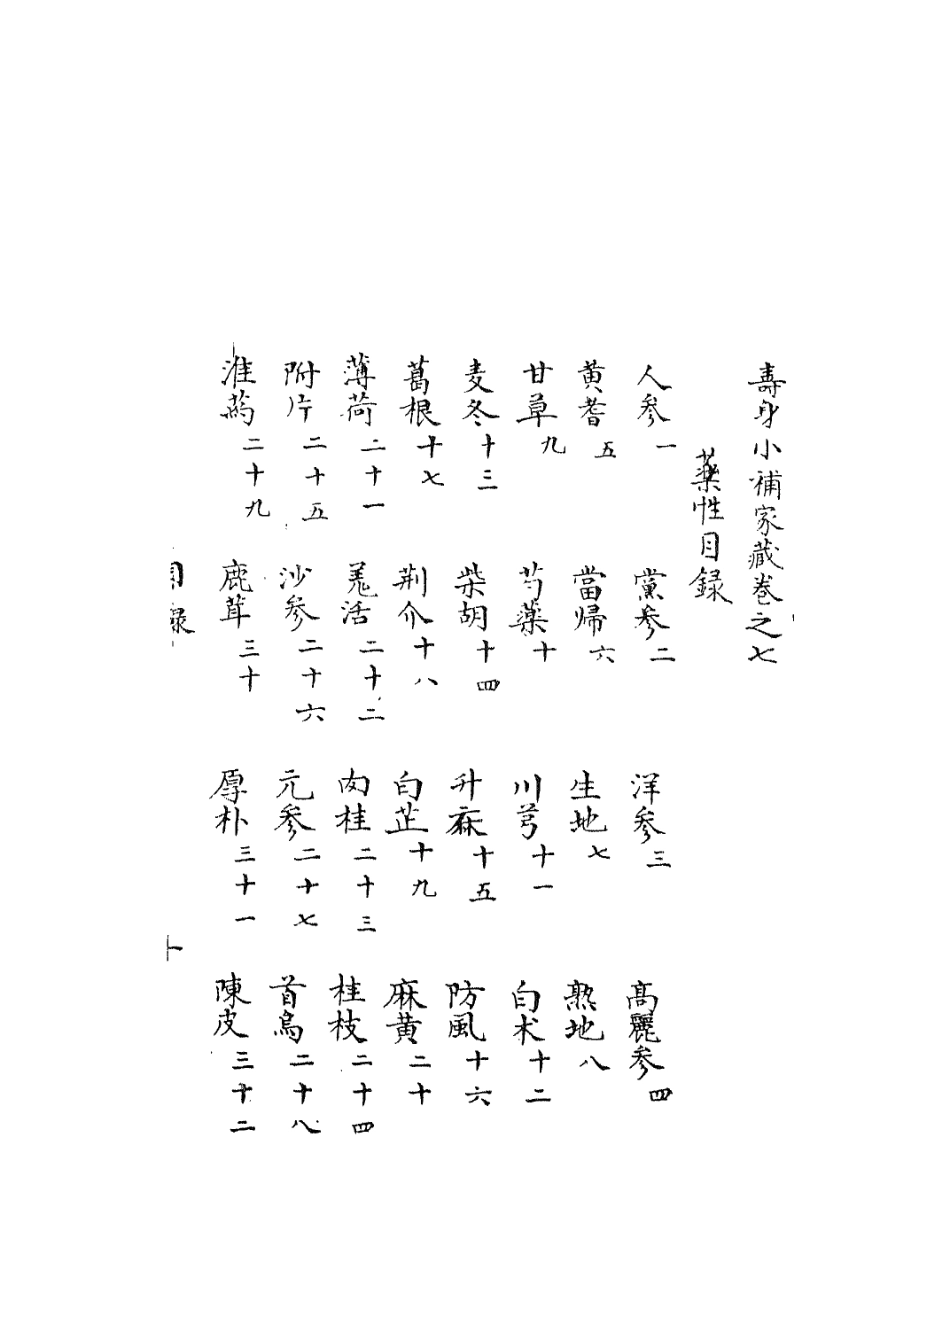 壽身小補家藏巻之七
藥性目録
人參一 黨參二 洋參三 高麗參四
黄耆五 當帰六 生地七 熟地八
甘草九 芍藥十 川芎十一 白术十二
麦冬十三 柴胡十四 升麻十五 防風十六
葛根十七 荆介十八 白芷十九 麻黄二十
薄荷二十一 羗活二十二 肉桂二十三 桂枝二十四
附片二十五 沙參二十六 元參二十七 首烏二十八
淮药二十九 鹿茸三十 厚朴三十一 陳皮三十二
目録